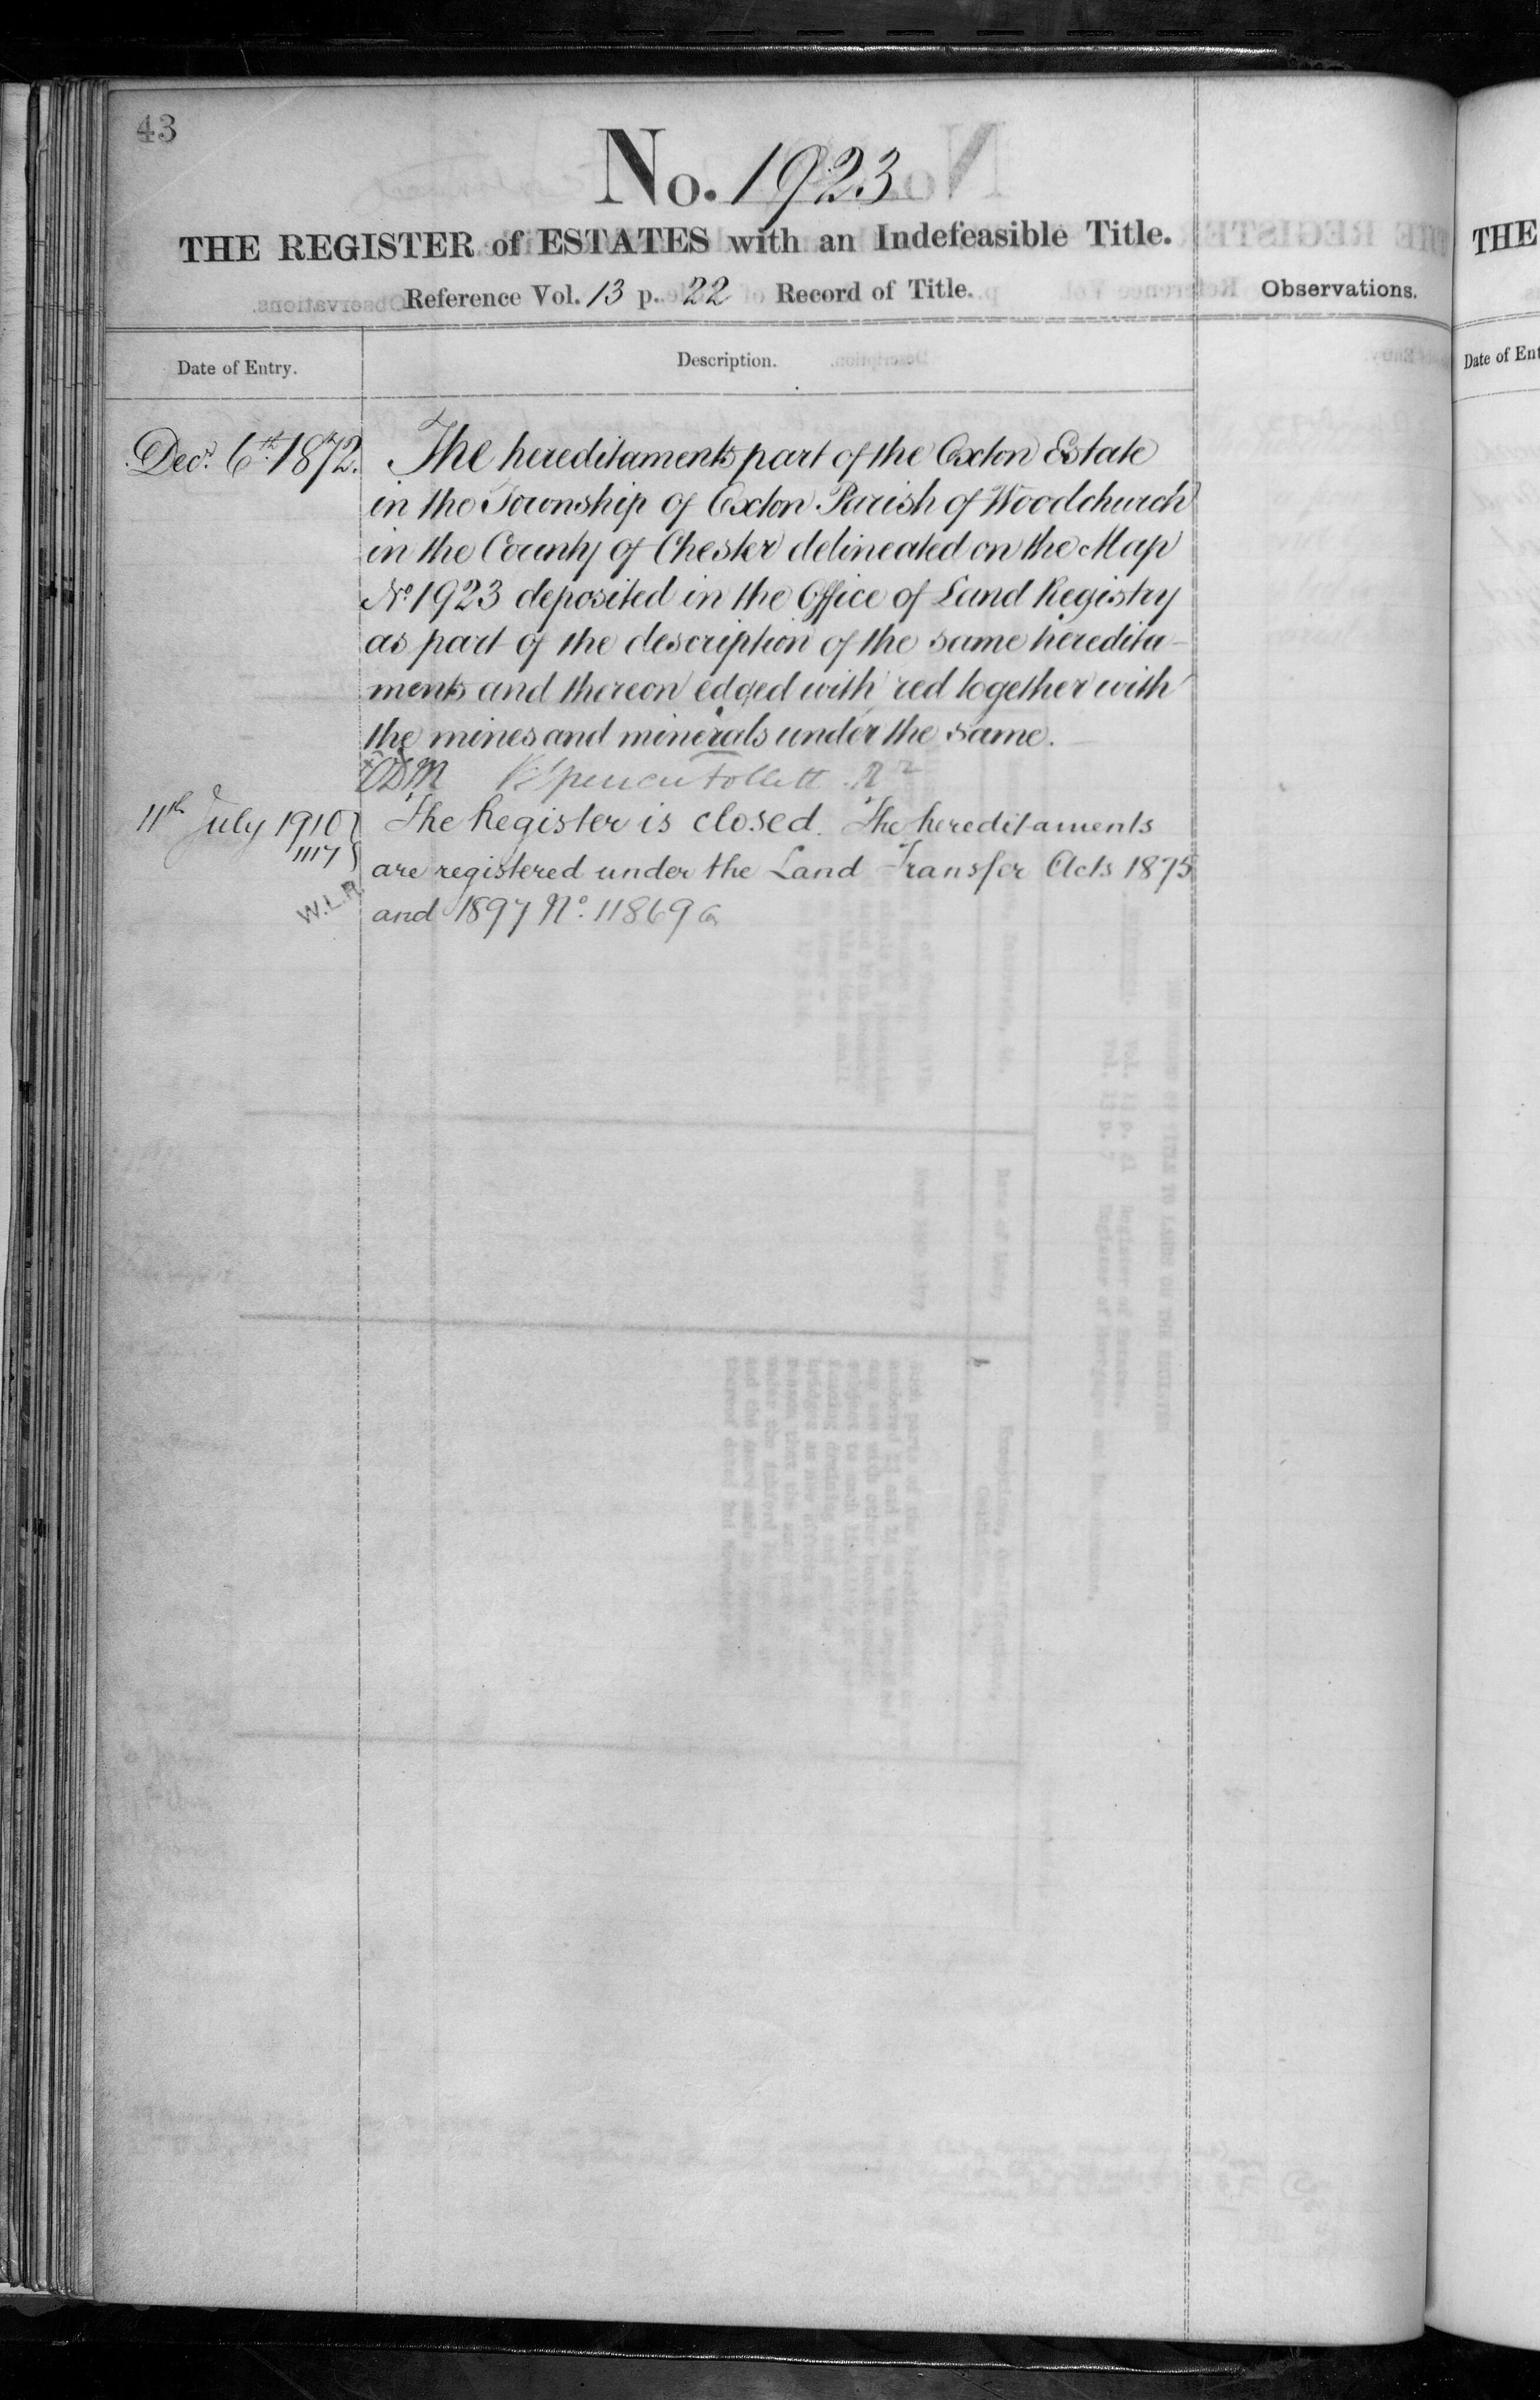 43
No. 1923
THE REGISTER of ESTATES with an Indefeasible Title.
Reference Vol. 13 p. 22 Record of Title.
Observations.
Date of Entry.
Description.
Decr. 6th 1872.
The hereditaments part of the Oxton Estate
in the Township of Oxton Parish of Woodchurch
in the County of Chester delineated on the Map
No 1923 deposited in the Office of Land Registry
as part of the description of the same heredita-
ments and thereon edged with red together with
the mines and minerals under the same.
Spencer Follett
11th July 1910
W.L.R.
The Register is closed. The hereditaments
are registered under the Land Transfer Acts 1875
and 1897 No. 11869
THE
Date of Ent